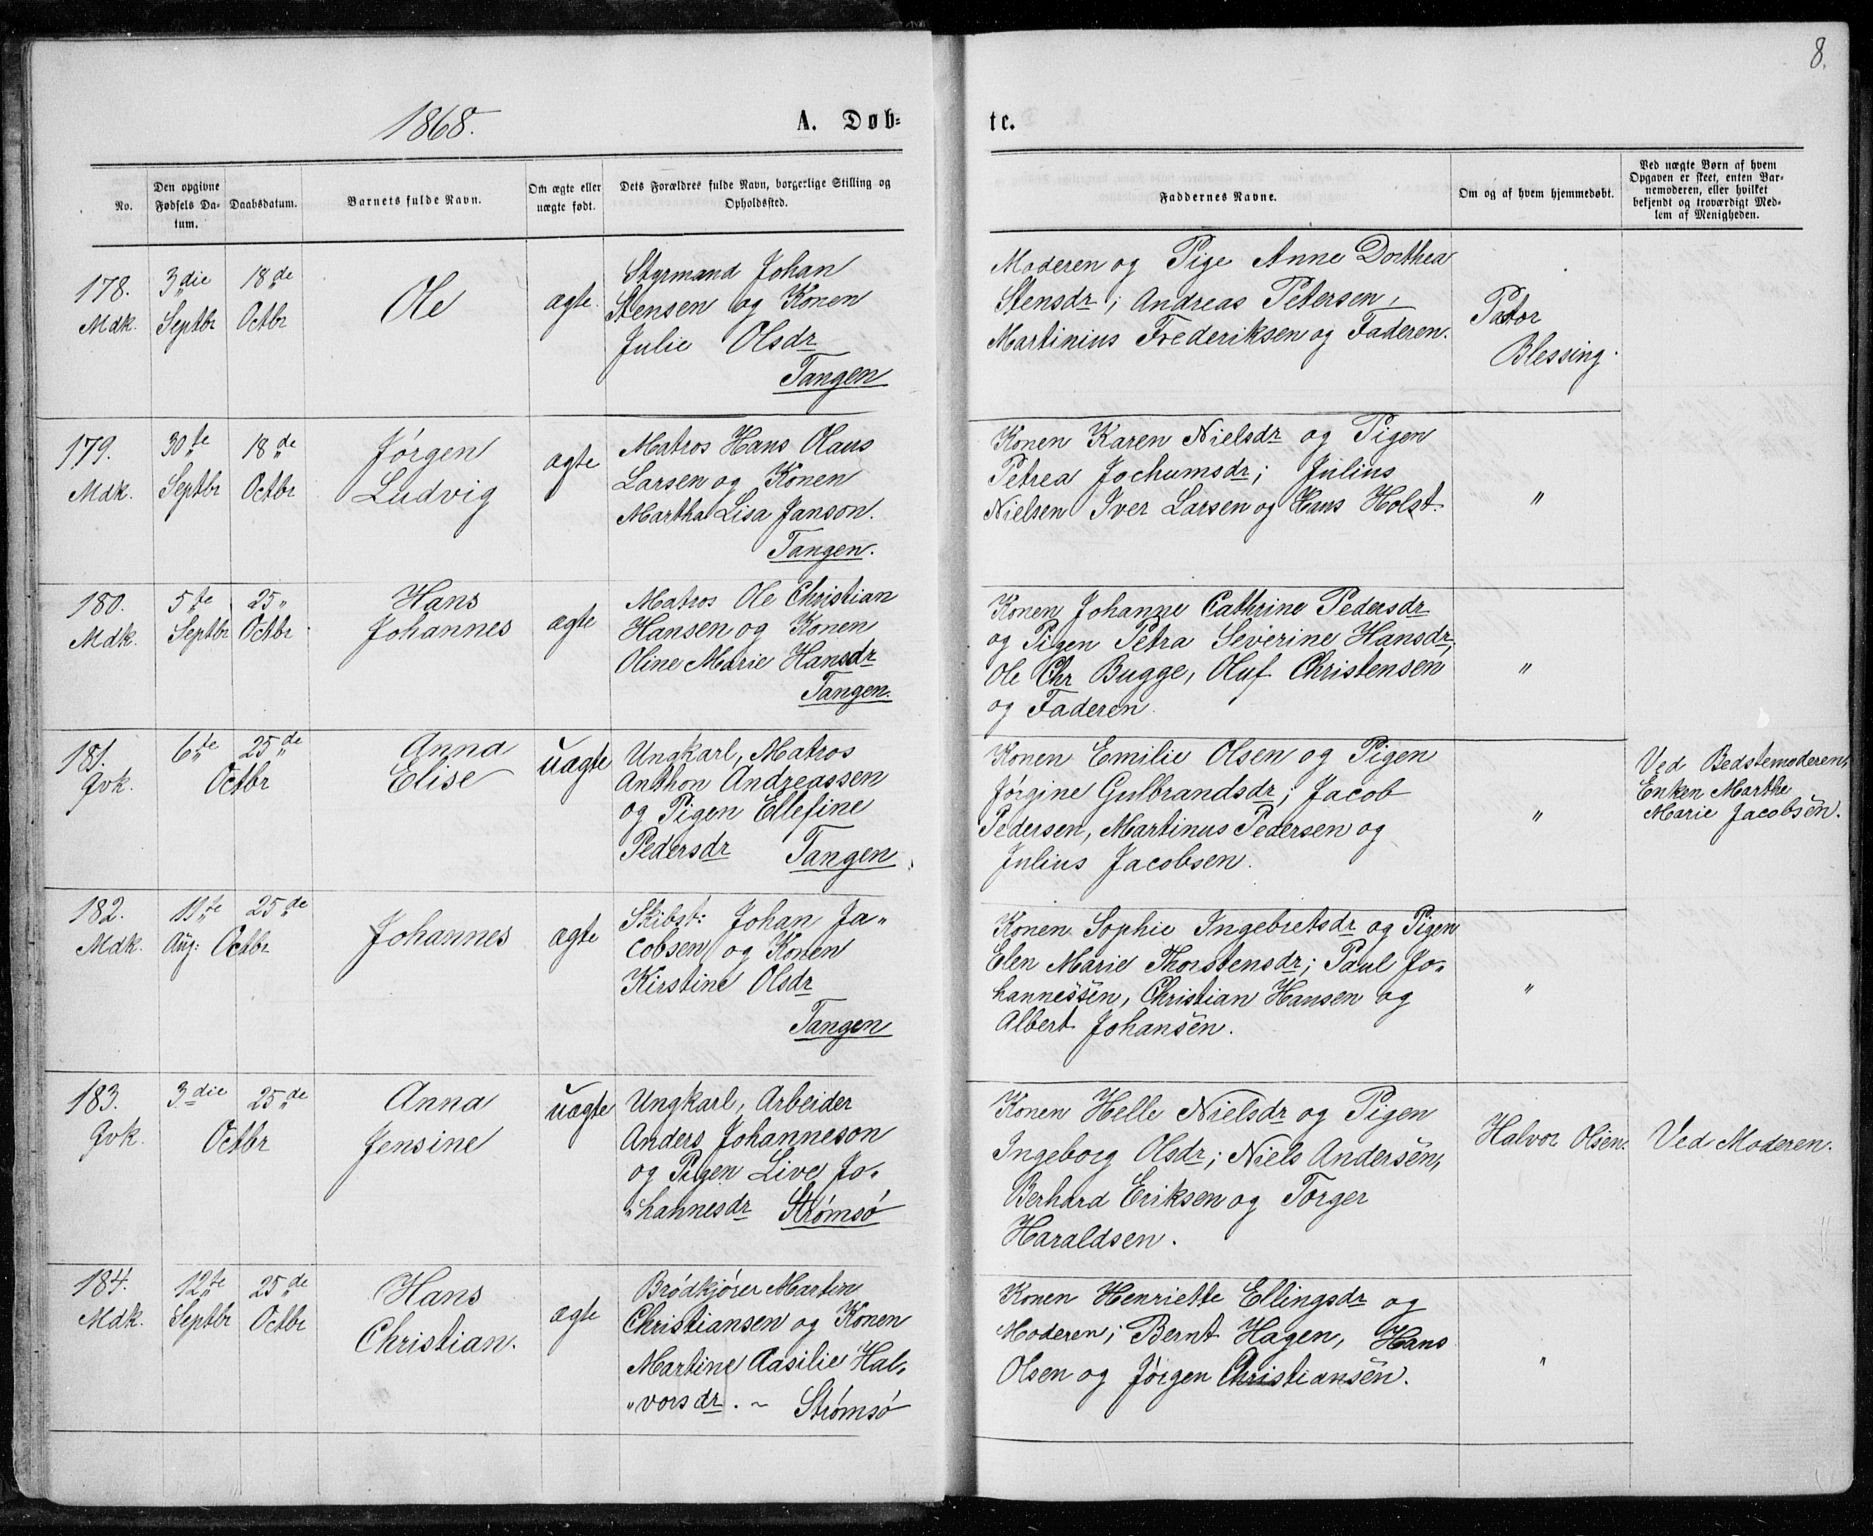 8.
1868.
A. Døb-
te.
No.
Den opgivne
Fødsels Da-
tum.
Daabsdatum.
Barnets fulde Navn.
Om ægte eller
uægte født.
Dets Forældres fulde Navn, borgerlige Stilling og
Opholdssted.
Faddernes Navne.
Om og af hvem hjemmedøbt.
Ved uægte Børn af hvem
Opgaven er skeet, enten Bar-
nemoderen, eller hvilket
bekjendt og troværdigt Med-
lem af Menigheden.
178.
Mdk.
3die
Septbr
18de
Octbr
Ole
ægte.
Styrmand Johan
Stensen og Konen
Julie Olsdr
Tangen
Moderen og Pige Anne Dorthea
Stensdr; Andreas Petersen,
Martinius Frederiksen og Faderen.
Pastor
Blessing.
179.
Mdk.
30te
Septbr
18de
Octbr
Jørgen
Ludvig
ægte
Matros Hans Olaus
Larsen og Konen
Martha Lisa Janson.
Tangen.
Konen Karen Nielsdr og Pigen
Petrea Jochumsdr; Julius
Nielsen Iver Larsen og Hans Holst.
"
180.
Mdk.
5te
Septbr
25"
Octbr.
Hans
Johannes
ægte
Matros Ole Christian
Hansen og Konen
Oline Marie Hansdr
Tangen.
Konen Johanne Cathrine Pedersdr
og Pigen Petra Severine Hansdr,
Ole Chr Bugge, Oluf Christensen
og Faderen.
"
181.
Qvk.
6te
25de
Octbr
Anna
Elise
uægte
Ungkarl, Matros
Anthon Andreassen
og Pigen Ellefine
Pedersdr Tangen.
Konen Emilie Olsen og Pigen
Jørgine Gulbrandsdr; Jacob
Pedersen, Martinus Pedersen og
Julius Jacobsen.
"
Ved Bedstemoderen,
Enken Marthe
Marie Jacobsen.
182.
Mdk.
11te
Aug:
25de
Octbr
Johannes
ægte
Skibst: Johan Ja-
cobsen og Konen
Kirstine Olsdr
Tangen
Konen Sophie Ingebretsdr og Pigen
Elen Marie Thorstensdr; Paul Jo-
hannessen, Christian Hansen og
Albert Johansen.
"
183.
Qvk.
3die
25de
Octbr
Anna
Jensine
uægte
Ungkarl, Arbeider
Anders Johanneson
og Pigen Live Jo-
hannesdr Strømsø
Konen Helle Nielsdr og Pigen
Ingeborg Olsdr; Niels Andersen,
Berhard Eriksen og Torger
Haraldsen.
Halvor Olsen.
Ved Moderen.
184.
Mdk.
12te
Septbr
25de
Octbr
Hans
Christian.
ægte
Brødkjører Martin
Christiansen og Konen
Martine Aasilie Hal-
"vorsdr. ~ Strømsø
Konen Henriette Ellingsdr og
Moderen; Bernt Hagen, Hans
Olsen og Jørgen Christiansen.
"